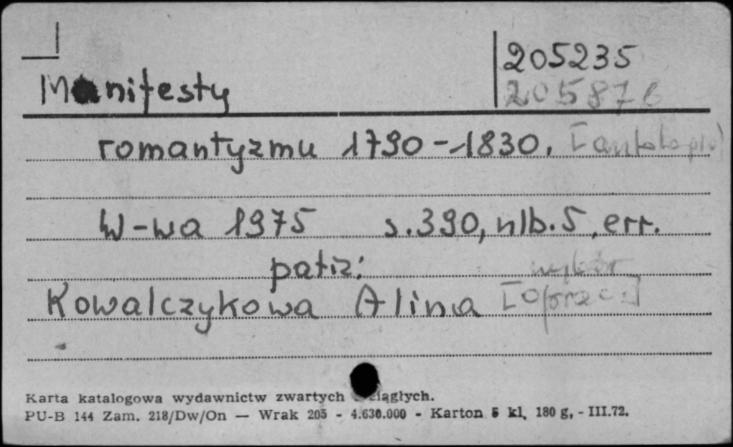 205235
Manifesty 205876
romantyzmu 1790-1830. [antologia]
W-wa 1975 s.390, nlb.5, err.
patrz: wybór
Kowalczykowa Alina [Oprac.]
Karta katalogowa wydawnictw zwartych ciągłych.
PU-B 144 Zam. 218/Dw/On — Wrak 205 - 4.630.000 - Karton 5 kl. 180 g, - III.72.